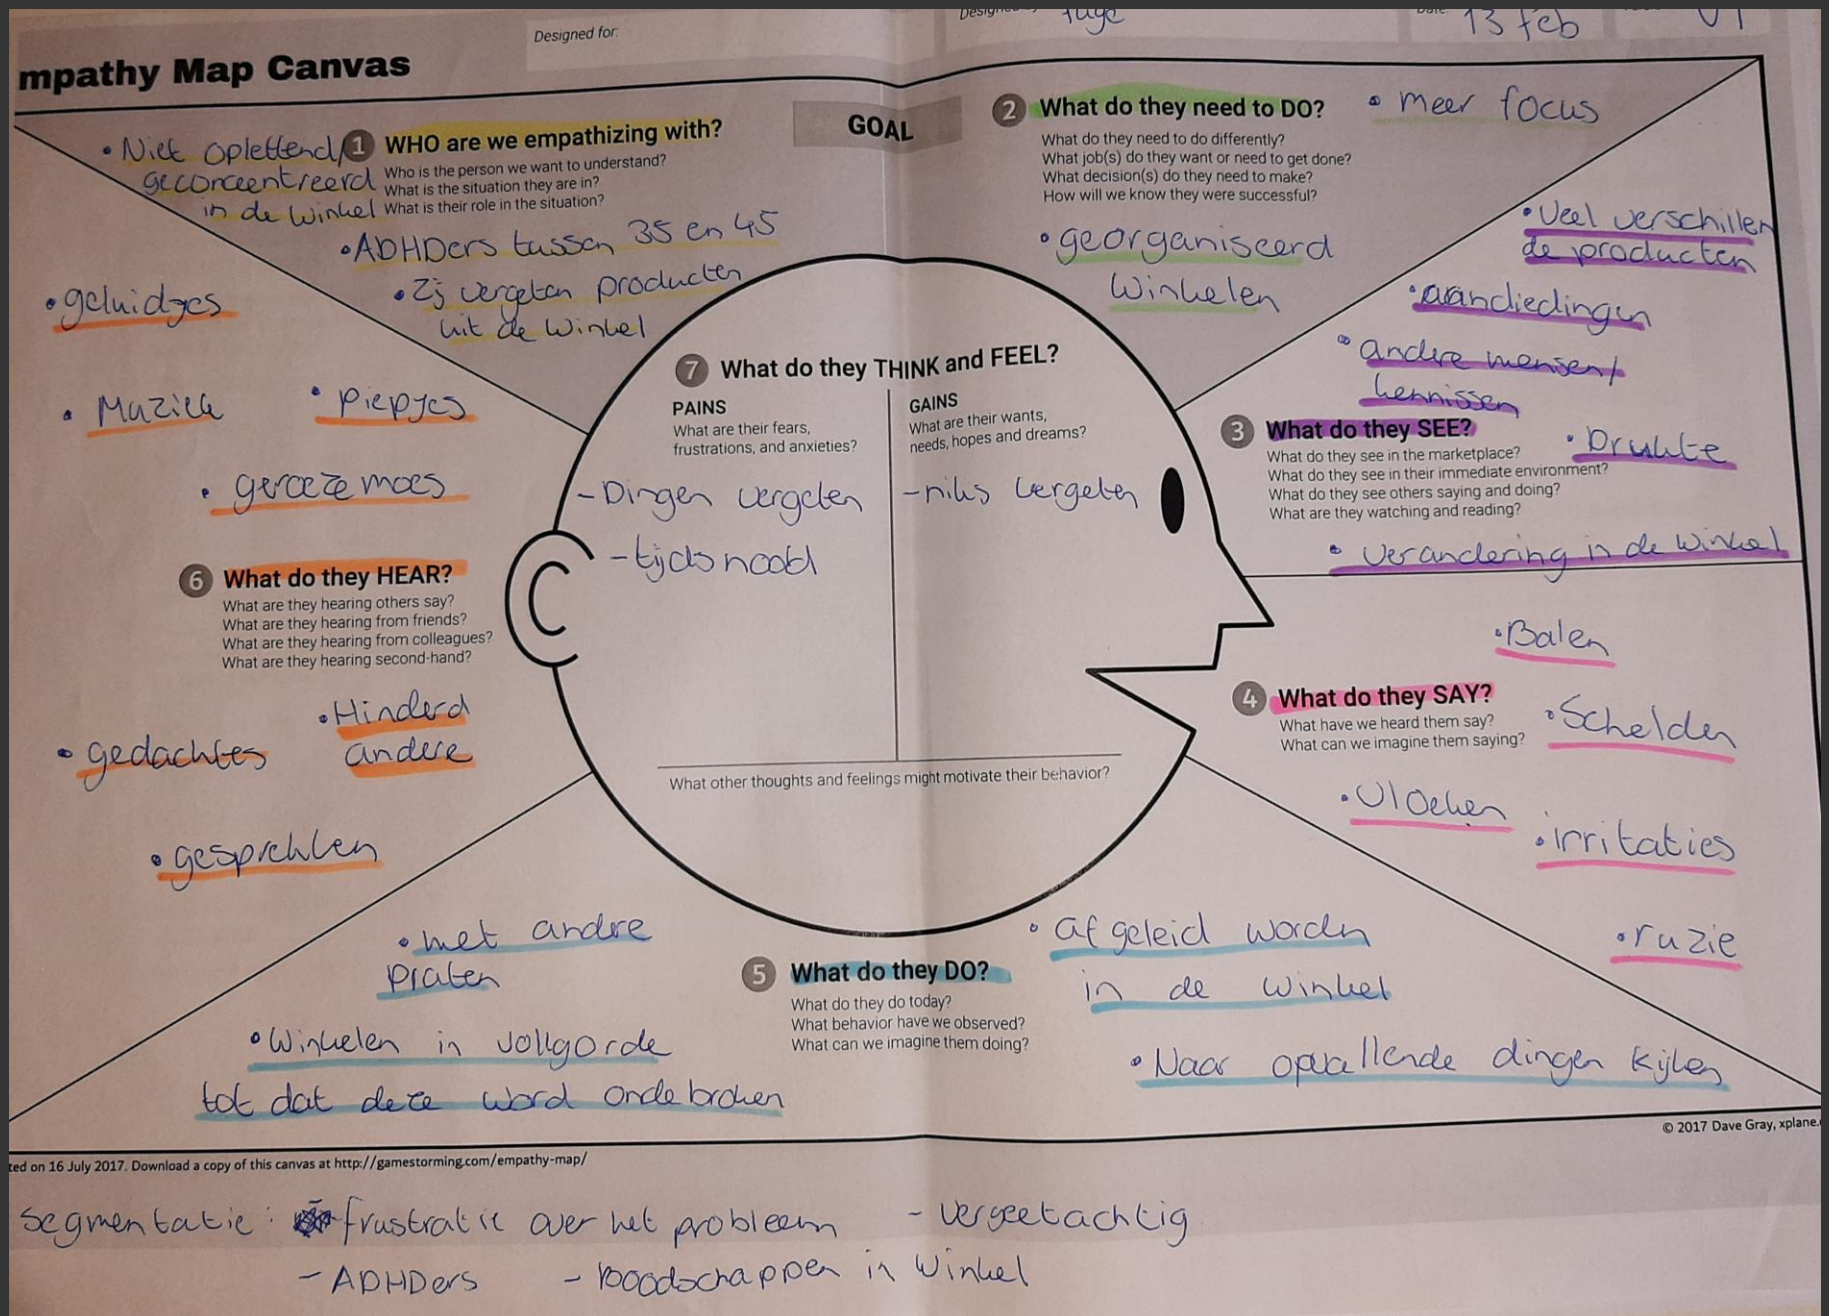 Designed for:
Date:
13 feb
V1
mpathy Map Canvas
GOAL
1 WHO are we empathizing with?
Who is the person we want to understand?
What is the situation they are in?
What is their role in the situation?
• Niet oplettend/
geconcentreerd
in de winkel
• ADHDers tussen 35 en 45
• Zij vergeten producten
uit de winkel
2 What do they need to DO?
What do they need to do differently?
What job(s) do they want or need to get done?
What decision(s) do they need to make?
How will we know they were successful?
• meer focus
• georganiseerd
winkelen
• Veel verschillen
de producten
• aandiedingen
• andere mensen/
kennissen
3 What do they SEE?
What do they see in the marketplace?
What do they see in their immediate environment?
What do they see others saying and doing?
What are they watching and reading?
• Drukte
• verandering in de winkel
4 What do they SAY?
What have we heard them say?
What can we imagine them saying?
• Balen
• Schelden
• Vloeken
• irritaties
• ruzie
5 What do they DO?
What do they do today?
What behavior have we observed?
What can we imagine them doing?
• met andre
praten
• Winkelen in vollgorde
tot dat deze word ondebroken
• afgeleid worden
in de winkel
• Naar opvallende dingen kijken
• geluidjes
• Muziek
• piepjes
• geroezemoes
6 What do they HEAR?
What are they hearing others say?
What are they hearing from friends?
What are they hearing from colleagues?
What are they hearing second-hand?
• Hinderd
andere
• gedachtes
• gesprekken
7 What do they THINK and FEEL?
PAINS
What are their fears,
frustrations, and anxieties?
- Dingen vergeten
- tijdsnood
GAINS
What are their wants,
needs, hopes and dreams?
- niks vergeten
What other thoughts and feelings might motivate their behavior?
© 2017 Dave Gray, xplane.
ted on 16 July 2017. Download a copy of this canvas at http://gamestorming.com/empathy-map/
Segmentatie: - frustratie over het probleem - vergeetachtig
- ADHDers - boodschappen in winkel